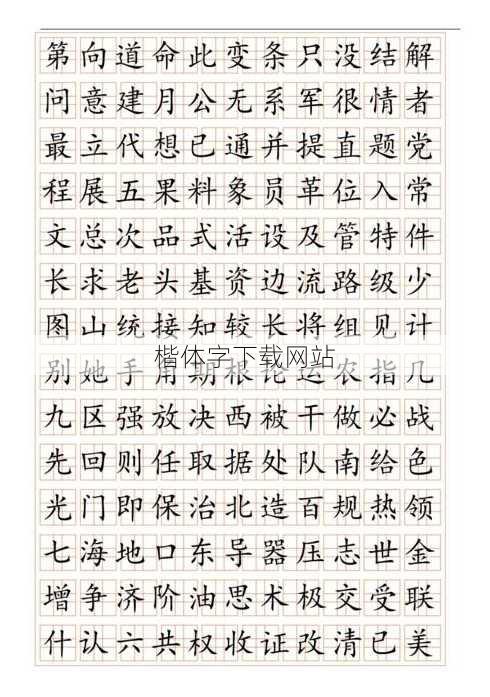 第向道命此变条只没结解
问意建月公无系军很情者
最立代想已通并提直题党
程展五果料象员革位入常
文总次品式活设及管特件
长求老头基资边流路级少
图山统接知较长将组见计
楷体字下载网站
别她手用期根论运农指几
九区强放决西被干做必战
先回则任取据处队南给色
光门即保治北造百规热领
七海地口东导器压志世金
增争济阶油思术极交受联
什认六共权收证改清已美